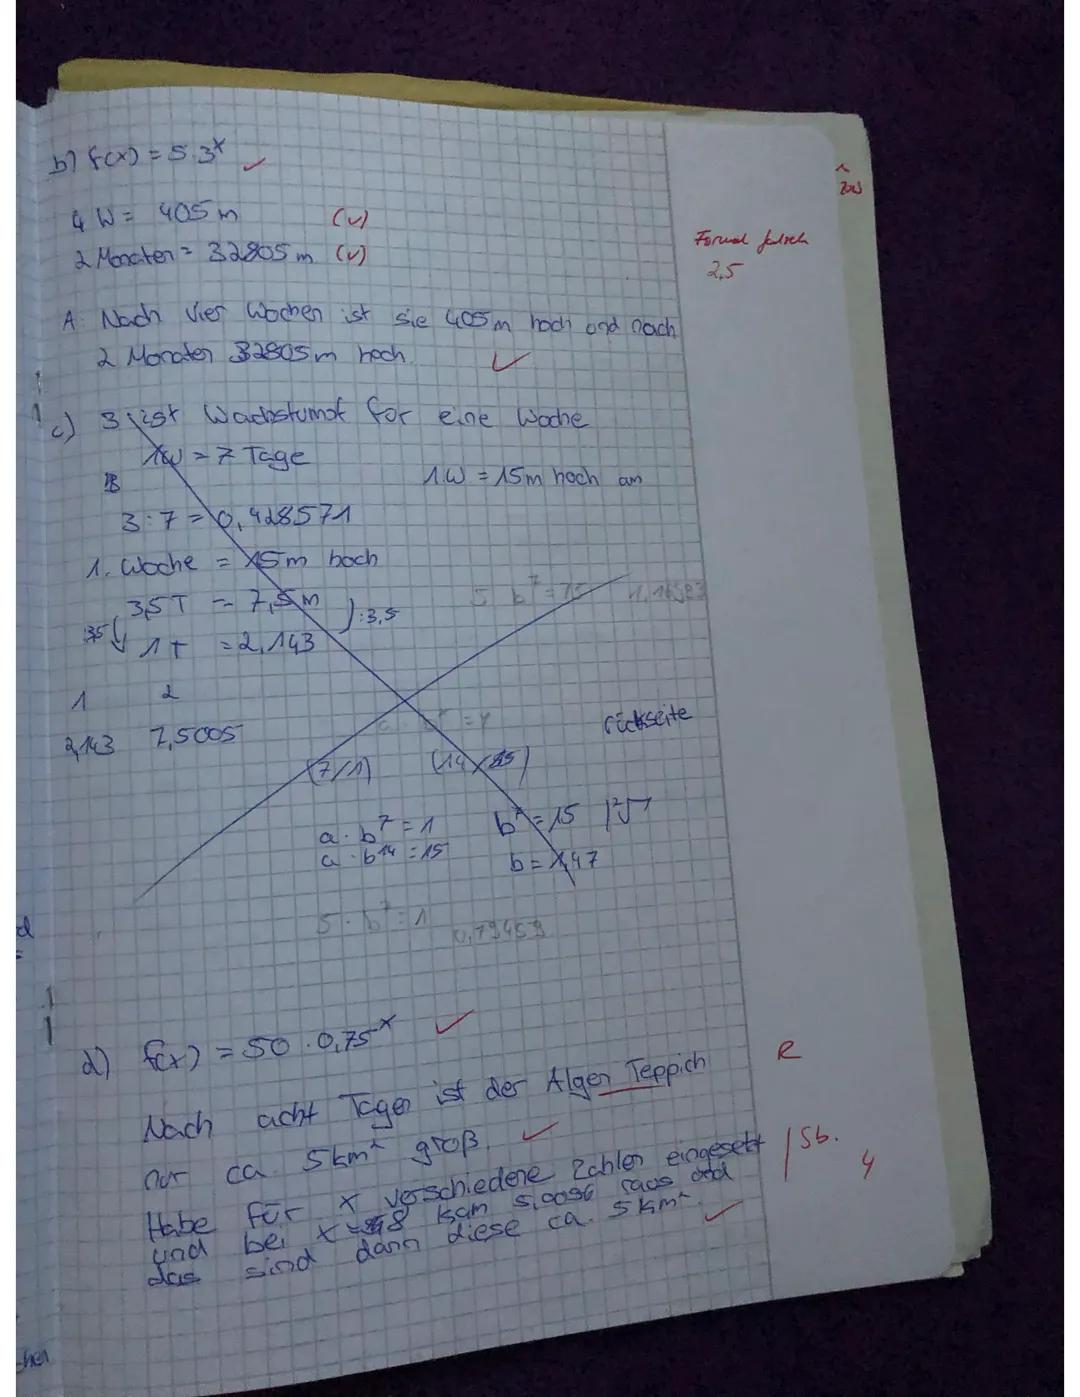 b) f(x) = 5·3ˣ ✓
4 W = 405 m (✓)
2 Monaten = 32805 m (✓)
Formal falsch
2,5
A: Nach vier Wochen ist sie 405 m hoch und nach
2 Monaten 32805 m hoch. ✓
c) 3 ist Wachstumsf für eine Woche
1W = 7 Tage
1.W = 15m hoch am
3:7 = 0,428571
1. Woche = 15m hoch
3,5T = 7,5m
:3,5
1T = 2,143
:3,5
5 b⁷ = 15
1 2
2,143 7,5005
rückseite
(7/1)
a·b⁷ = 1
a·b¹⁴ = 15
b⁷ = 15
b = 1,47
5·b⁷ = 1 0,79459
d) f(x) = 50·0,75ˣ ✓
Nach acht Tagen ist der Algen Teppich R
nur ca. 5km² groß. ✓
Habe für x verschiedene Zahlen eingesetzt
und bei x = 8 kam 5,0056 raus und
das sind dann diese ca. 5km². ✓
/ Sb.
4